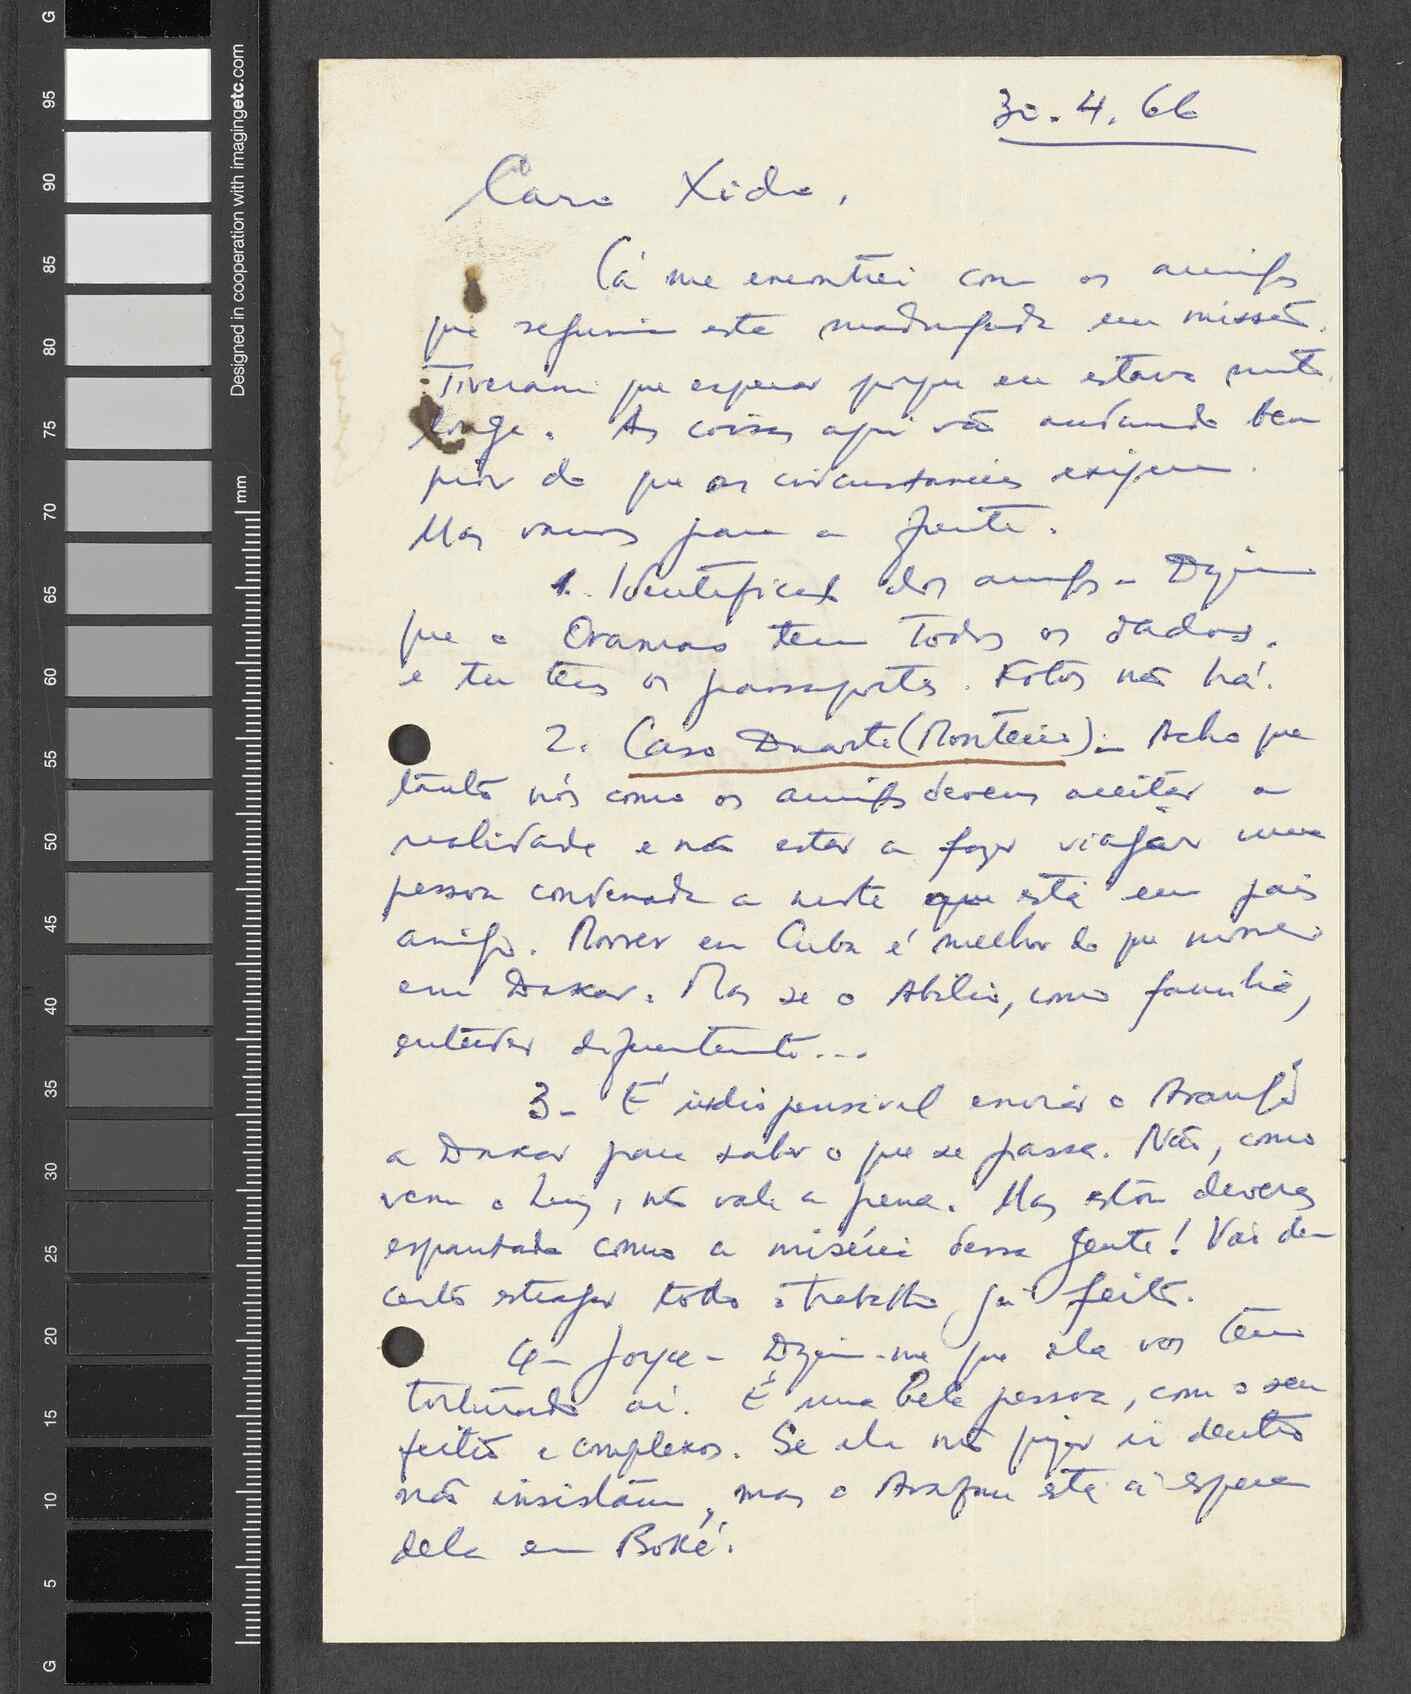 30.4.66
Caro Xido,
Cá me encontrei com os amigos
que seguiram esta madrugada em missão.
Tiveram que esperar porque eu estava muito
longe. As coisas aqui vão andando bem
pior do que as circunstancias exigem.
Mas vamos para a frente.
1. Identificação dos amigos - Dizem
que o Oramas tem todos os dados.
e tu tens os passaportes. Fotos não há.
2. Caso Duarte (Monteiro) - Acho que
tanto nós como os amigos devemos aceitar a
realidade e não estar a fazer viajar uma
pessoa condenada a morte que está em país
amigo. Morrer em Cuba é melhor do que morrer
em Dakar. Mas se o Abilio, como familia,
entender diferentemente...
3- É indispensavel enviar o Araujo
a Dakar para saber o que se passa. Não, como
vem o Luiz, não vale a pena. Mas estou deveras
espantado como a miséria dessa gente! Vai de-
certo estragar todo o trabalho já feito.
4- Joyce - Dizem-me que ela vos tem
torturado aí. É uma bela pessoa, com o seu
feitio e complexos. Se ela não quizer ir dentro
não insistam, mas o Arafam está à espera
dela em Boké.
Designed in cooperation with imagingetc.com
mm
G
95
90
85
80
75
70
65
60
55
50
45
40
35
30
25
20
15
10
5
G